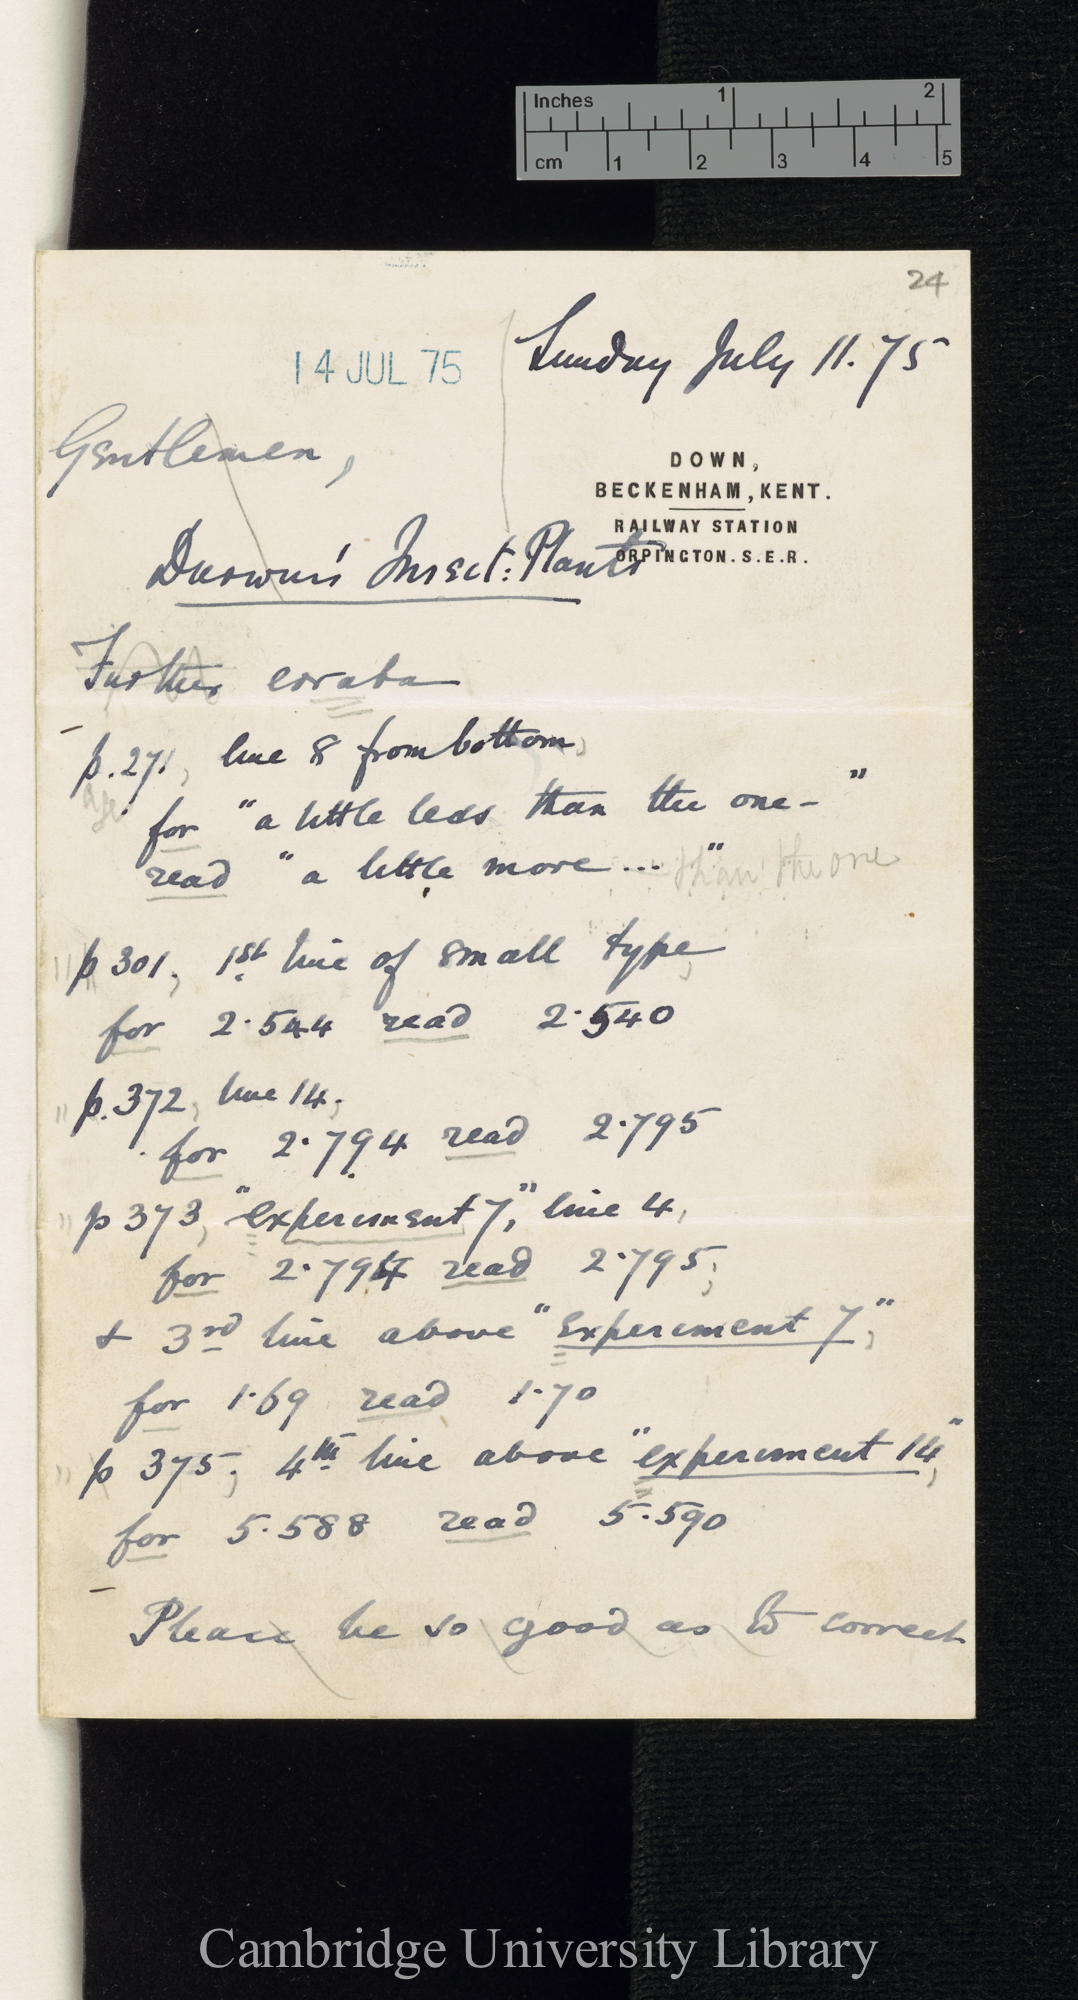 Inches 1 2
cm 1 2 3 4 5
24
14 JUL 75
Sunday July 11. 75
DOWN,
BECKENHAM, KENT.
RAILWAY STATION
ORPINGTON. S.E.R.
Gentlemen,
Darwin's Insect: Plants
Further errata
p. 271, line 8 from bottom,
for "a little less than the one— "
read "a little more ... " than the one
p 301, 1st line of small type,
for 2.544 read 2.540
p. 372, line 14.
for 2.794 read 2.795
p 373, "experiment 7," line 4,
for 2.794 read 2.795;
& 3rd line above "Experiment 7,"
for 1.69 read 1.70
p 375, 4th line above "experiment 14",
for 5.588 read 5.590
Please be so good as to correct
Cambridge University Library